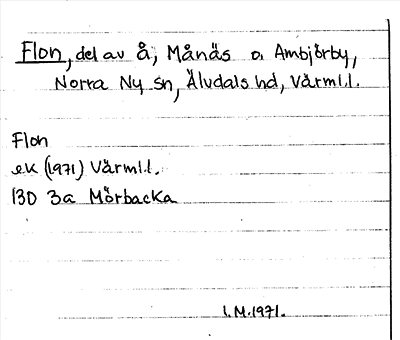 Flon, del av å, Månäs o. Ambjörby,
Norra Ny sn, Älvdals hd, Värml.l.
Flon
ek (1971) Värml.l.
13D 3a Mörbacka
I.M.1971.